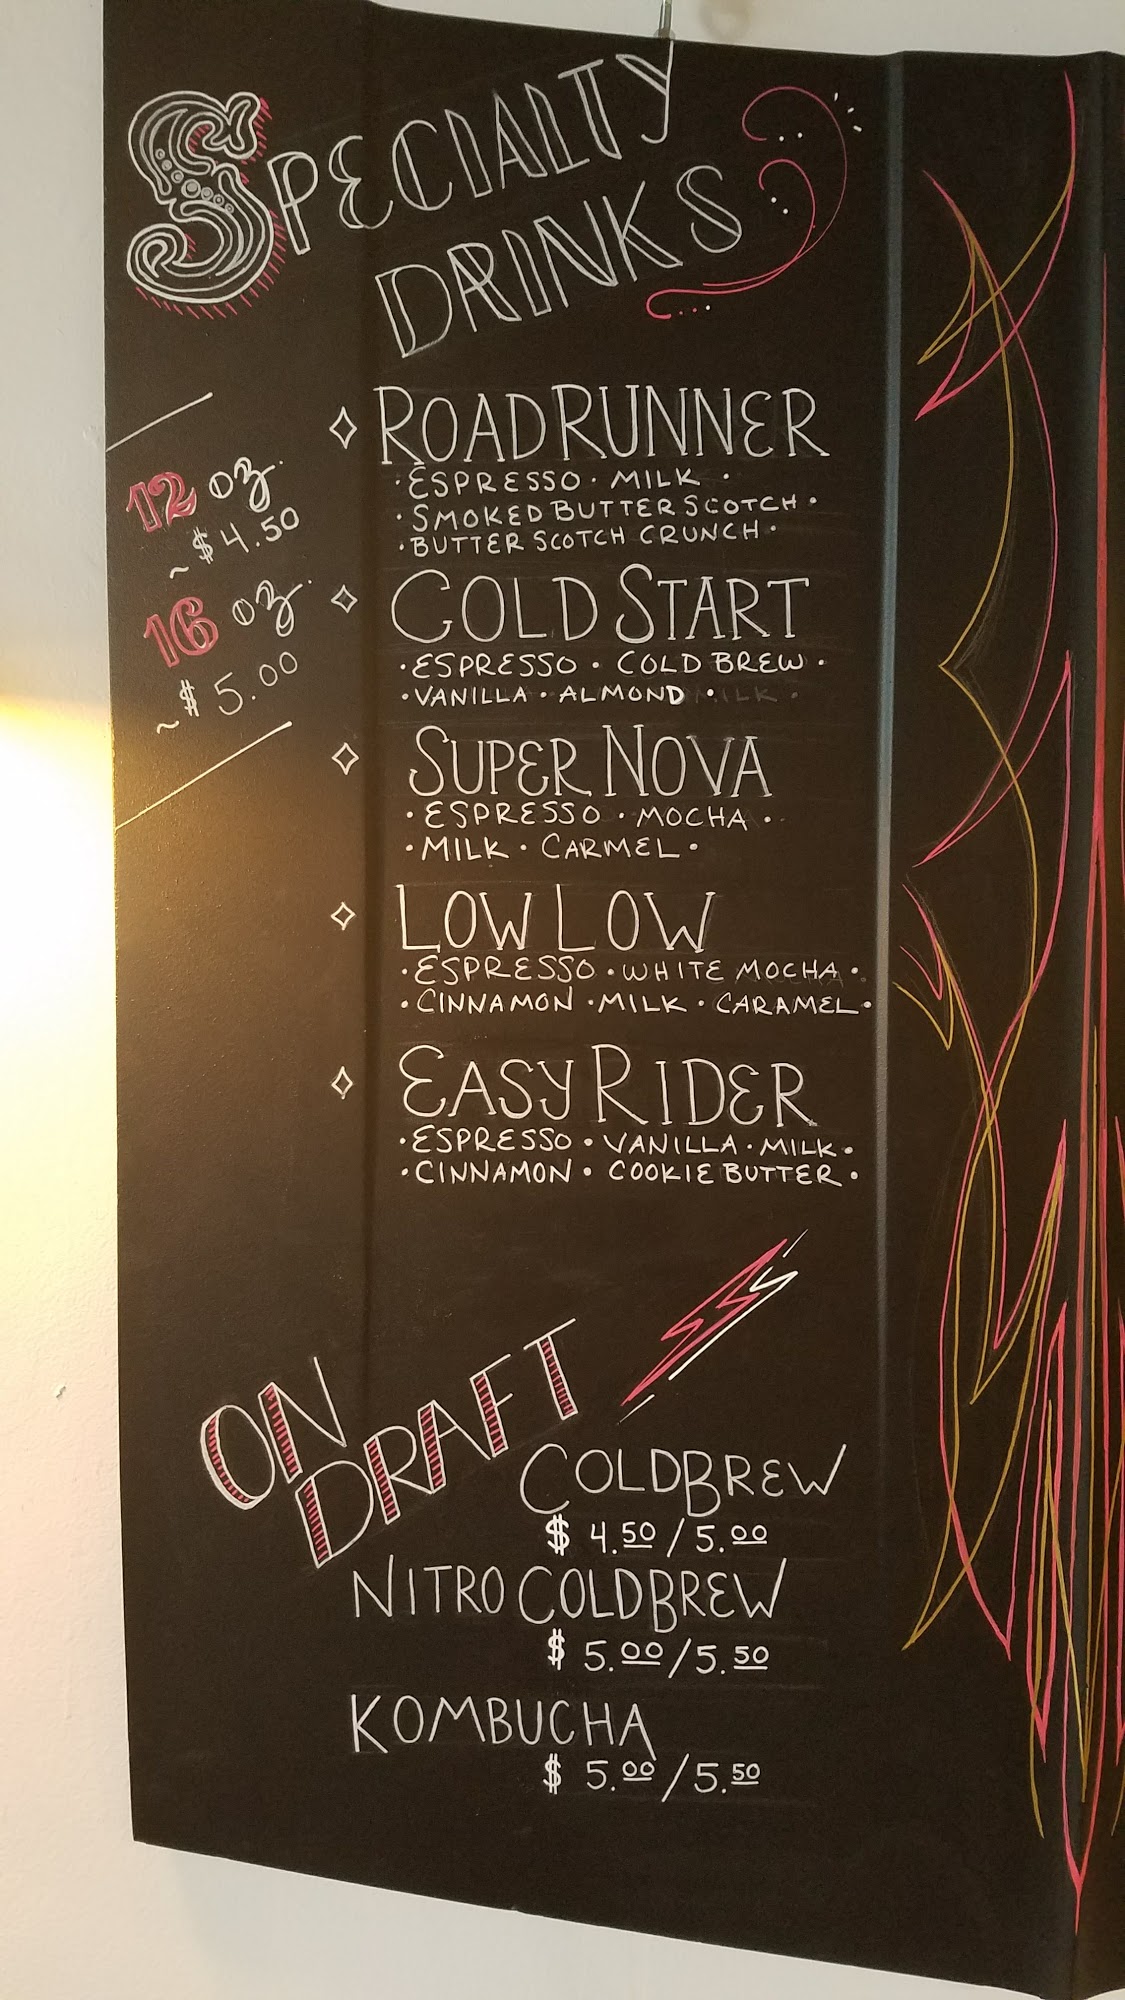 SPECIALTY
DRINKS
12 oz.
~ $4.50
16 oz.
~ $5.00
ROADRUNNER
· ESPRESSO · MILK ·
· SMOKED BUTTERSCOTCH ·
· BUTTERSCOTCH CRUNCH ·
COLD START
· ESPRESSO · COLD BREW ·
· VANILLA · ALMOND MILK ·
SUPER NOVA
· ESPRESSO · MOCHA ·
· MILK · CARMEL ·
LOW LOW
· ESPRESSO · WHITE MOCHA ·
· CINNAMON · MILK · CARAMEL ·
EASY RIDER
· ESPRESSO · VANILLA · MILK ·
· CINNAMON · COOKIE BUTTER ·
ON
DRAFT
COLDBREW
$ 4.50 / 5.00
NITRO COLDBREW
$ 5.00 / 5.50
KOMBUCHA
$ 5.00 / 5.50